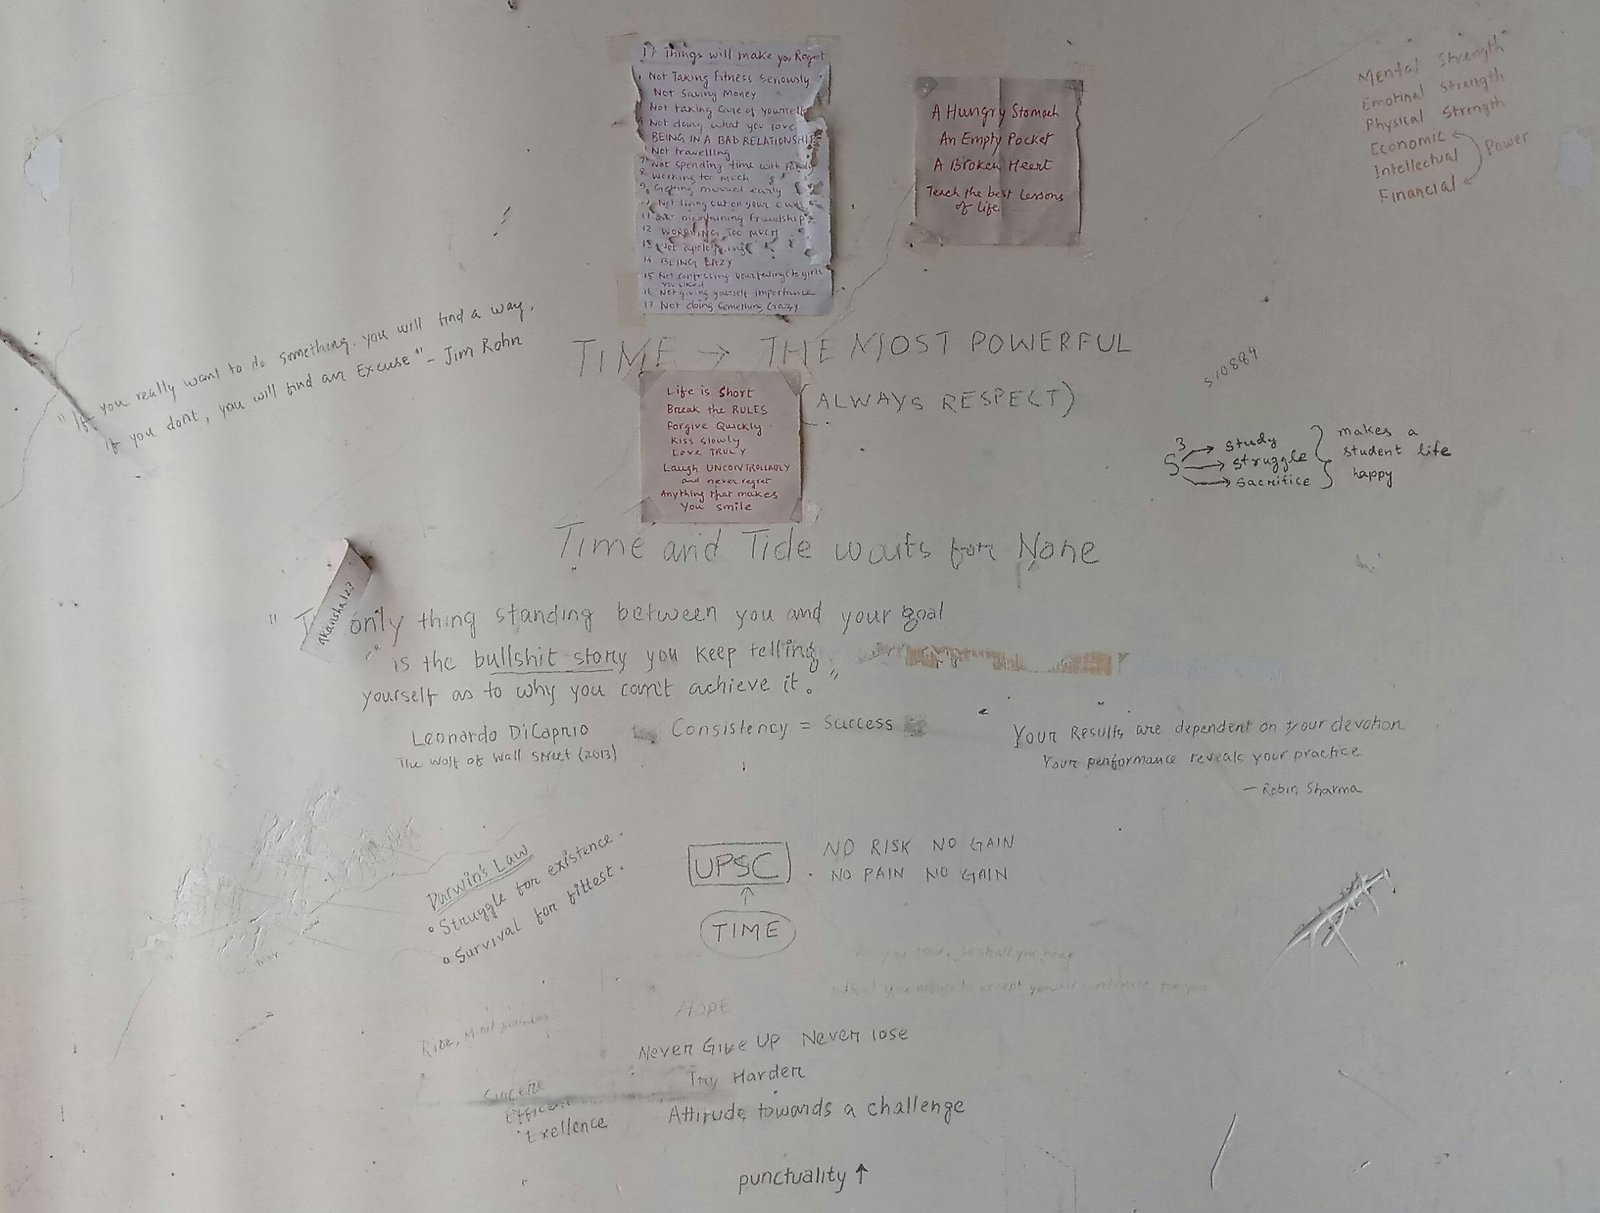 17 Things will make you Regret
Not Taking Fitness Seriously
Not Saving Money
Not taking care of yourself
Not doing what you love
BEING IN A BAD RELATIONSHIP
Not travelling
Not spending time with family
8 Working too much
9. Getting married early
Not living out on your own
11 Not maintaining friendships
12 WORRYING TOO MUCH
13 Not apologizing
14 BEING LAZY
15 Not confessing your feelings to girls
you liked
16 Not giving yourself importance
17 Not doing Something Crazy
A Hungry Stomach
An Empty Pocket
A Broken Heart
Teach the best Lessons
of life
Mental Strength
Emotinal Strength
Physical Strength
Economic
Intellectual
Financial
Power
"If you really want to do something. you will find a way.
if you dont, you will find an Excuse" - Jim Rohn
TIME → THE MOST POWERFUL
(ALWAYS RESPECT)
Life is Short
Break the RULES
Forgive Quickly
Kiss slowly
Love TRULY
Laugh UNCONTROLLABLY
and never regret
Anything that makes
You smile
510884
S³ → Study
→ Struggle
→ Sacrifice
makes a
student life
happy
Time and Tide waits for None
akansha123
" only thing standing between you and your goal
is the bullshit story you keep telling
yourself as to why you can't achieve it."
Leonardo DiCaprio
The Wolf of Wall Street (2013)
Consistency = Success
Your Results are dependent on your devotion
Your performance reveals your practice
- Robin Sharma
Darwin's Law
• Struggle for existence.
• Survival for fittest.
UPSC
↑
TIME
NO RISK NO GAIN
NO PAIN NO GAIN
so shall you reap
HOPE
Never Give Up Never lose
Try Harder
Attitude towards a challenge
Sincere
Efficient
Exellence
punctuality ↑